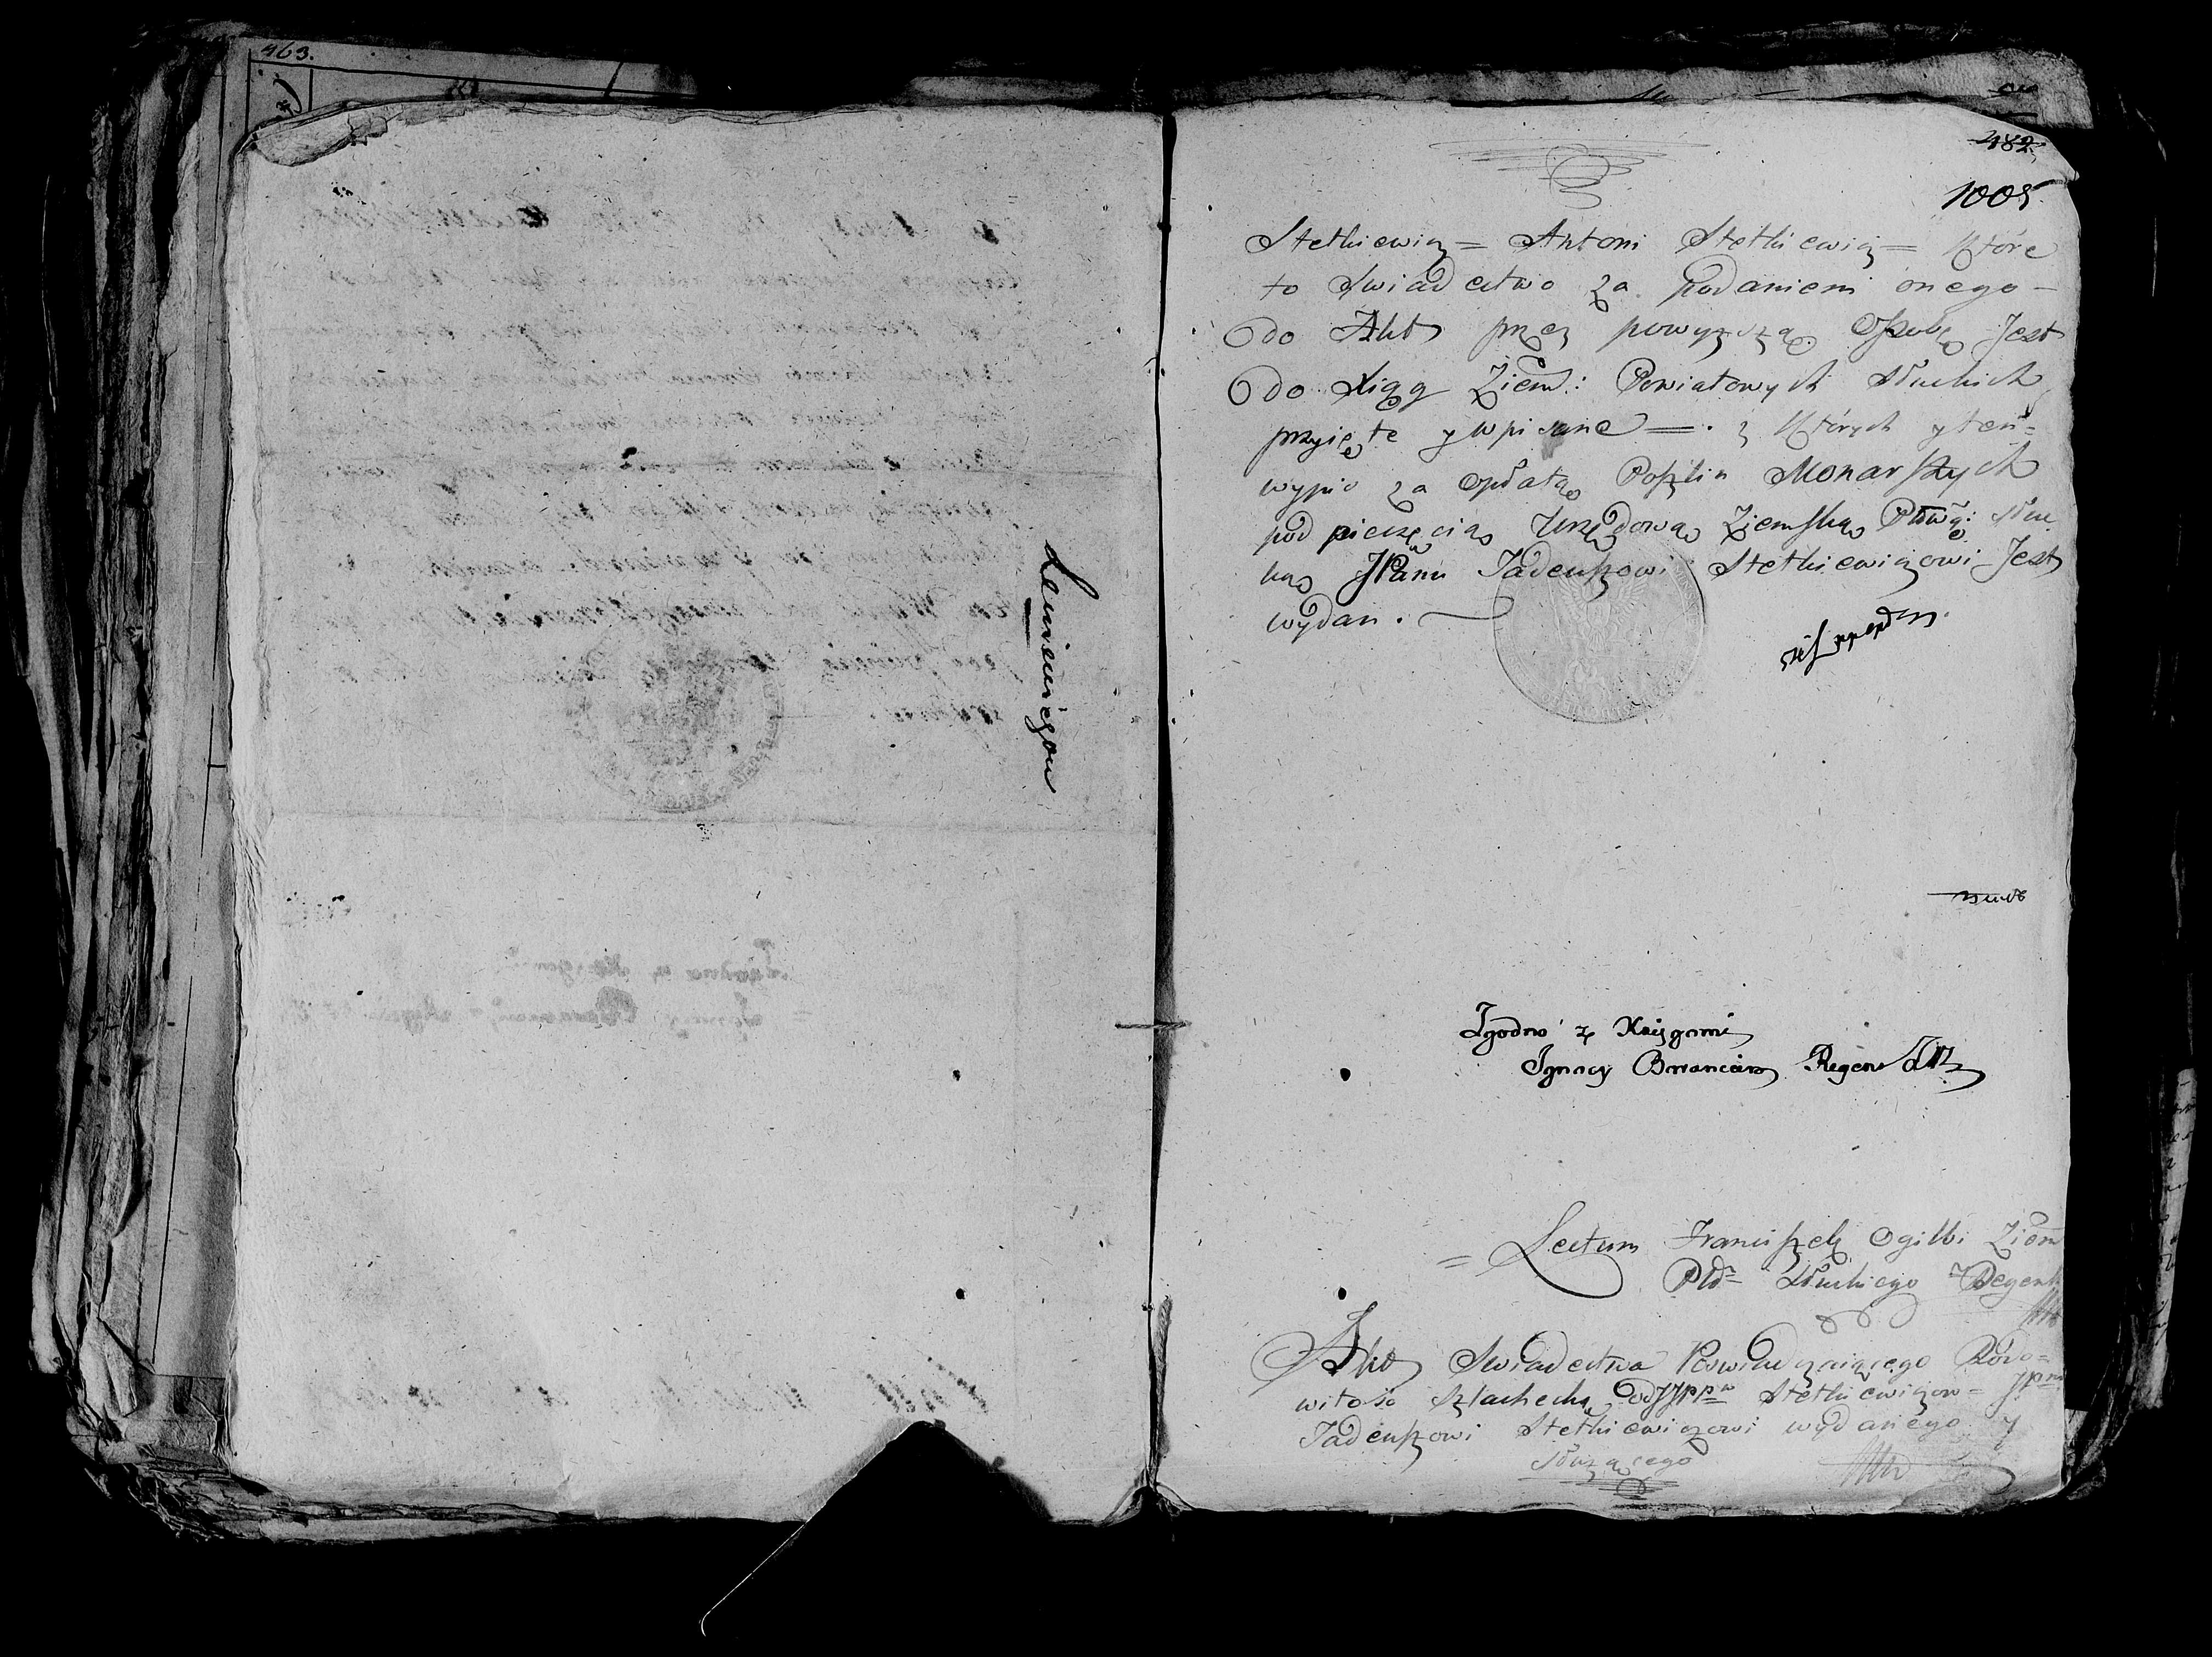 463.
Leniewiczou
482
1005
Stetkiewicz = Antoni Stetkiewicz = Które
to Swiadectwo za podaniem onego -
do Akt przez powyższą Osobę Jest
do Xiąg Ziem: Powiatowych Słuckich
przyięte y wpisane = . z Których y ten -
wypis za Opłatą Poszlin Monarszych
pod pieczęcią Urzędową Ziemską Ptową: Słuc
ką JPanu Tadeuszowi Stetkiewiczowi Jest
wydan .
Zgodno z Xięgami
Ignacy Regent
= Lectum Franciszek Ogilbi Ziem
Ptu Słuckiego Regent
Akt Swiadectwa Poswiadczaiącego Rodo=
witość Szlachecką od JJPPw Stetkiewiczow = JPnu
Tadeuszowi Stetkiewiczowi wydanego y
Służącego